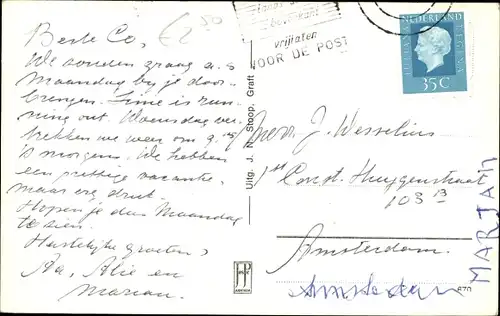 Beste Co,
We zouden graag a.s
Maandag bij je door-
brengen. Time is run-
ning out. Woensdag ver-
trekken we weer om 9
's morgens. We hebben
een prettige vacantie,
maar erg druk.
Hopen je dus Maandag
te zien.
Hartelijke groeten,
Aa, Alie en
Marian.
€ 2 50
vrijlaten
VOOR DE POST
NEDERLAND
JULIANA REGINA
35 C
Uitg. J. N. Stoop, Graft
Mevr. J. Wesselius
1st Const. Huygenstraat
103 B
Amsterdam.
Amsterdam
MARJAN
670